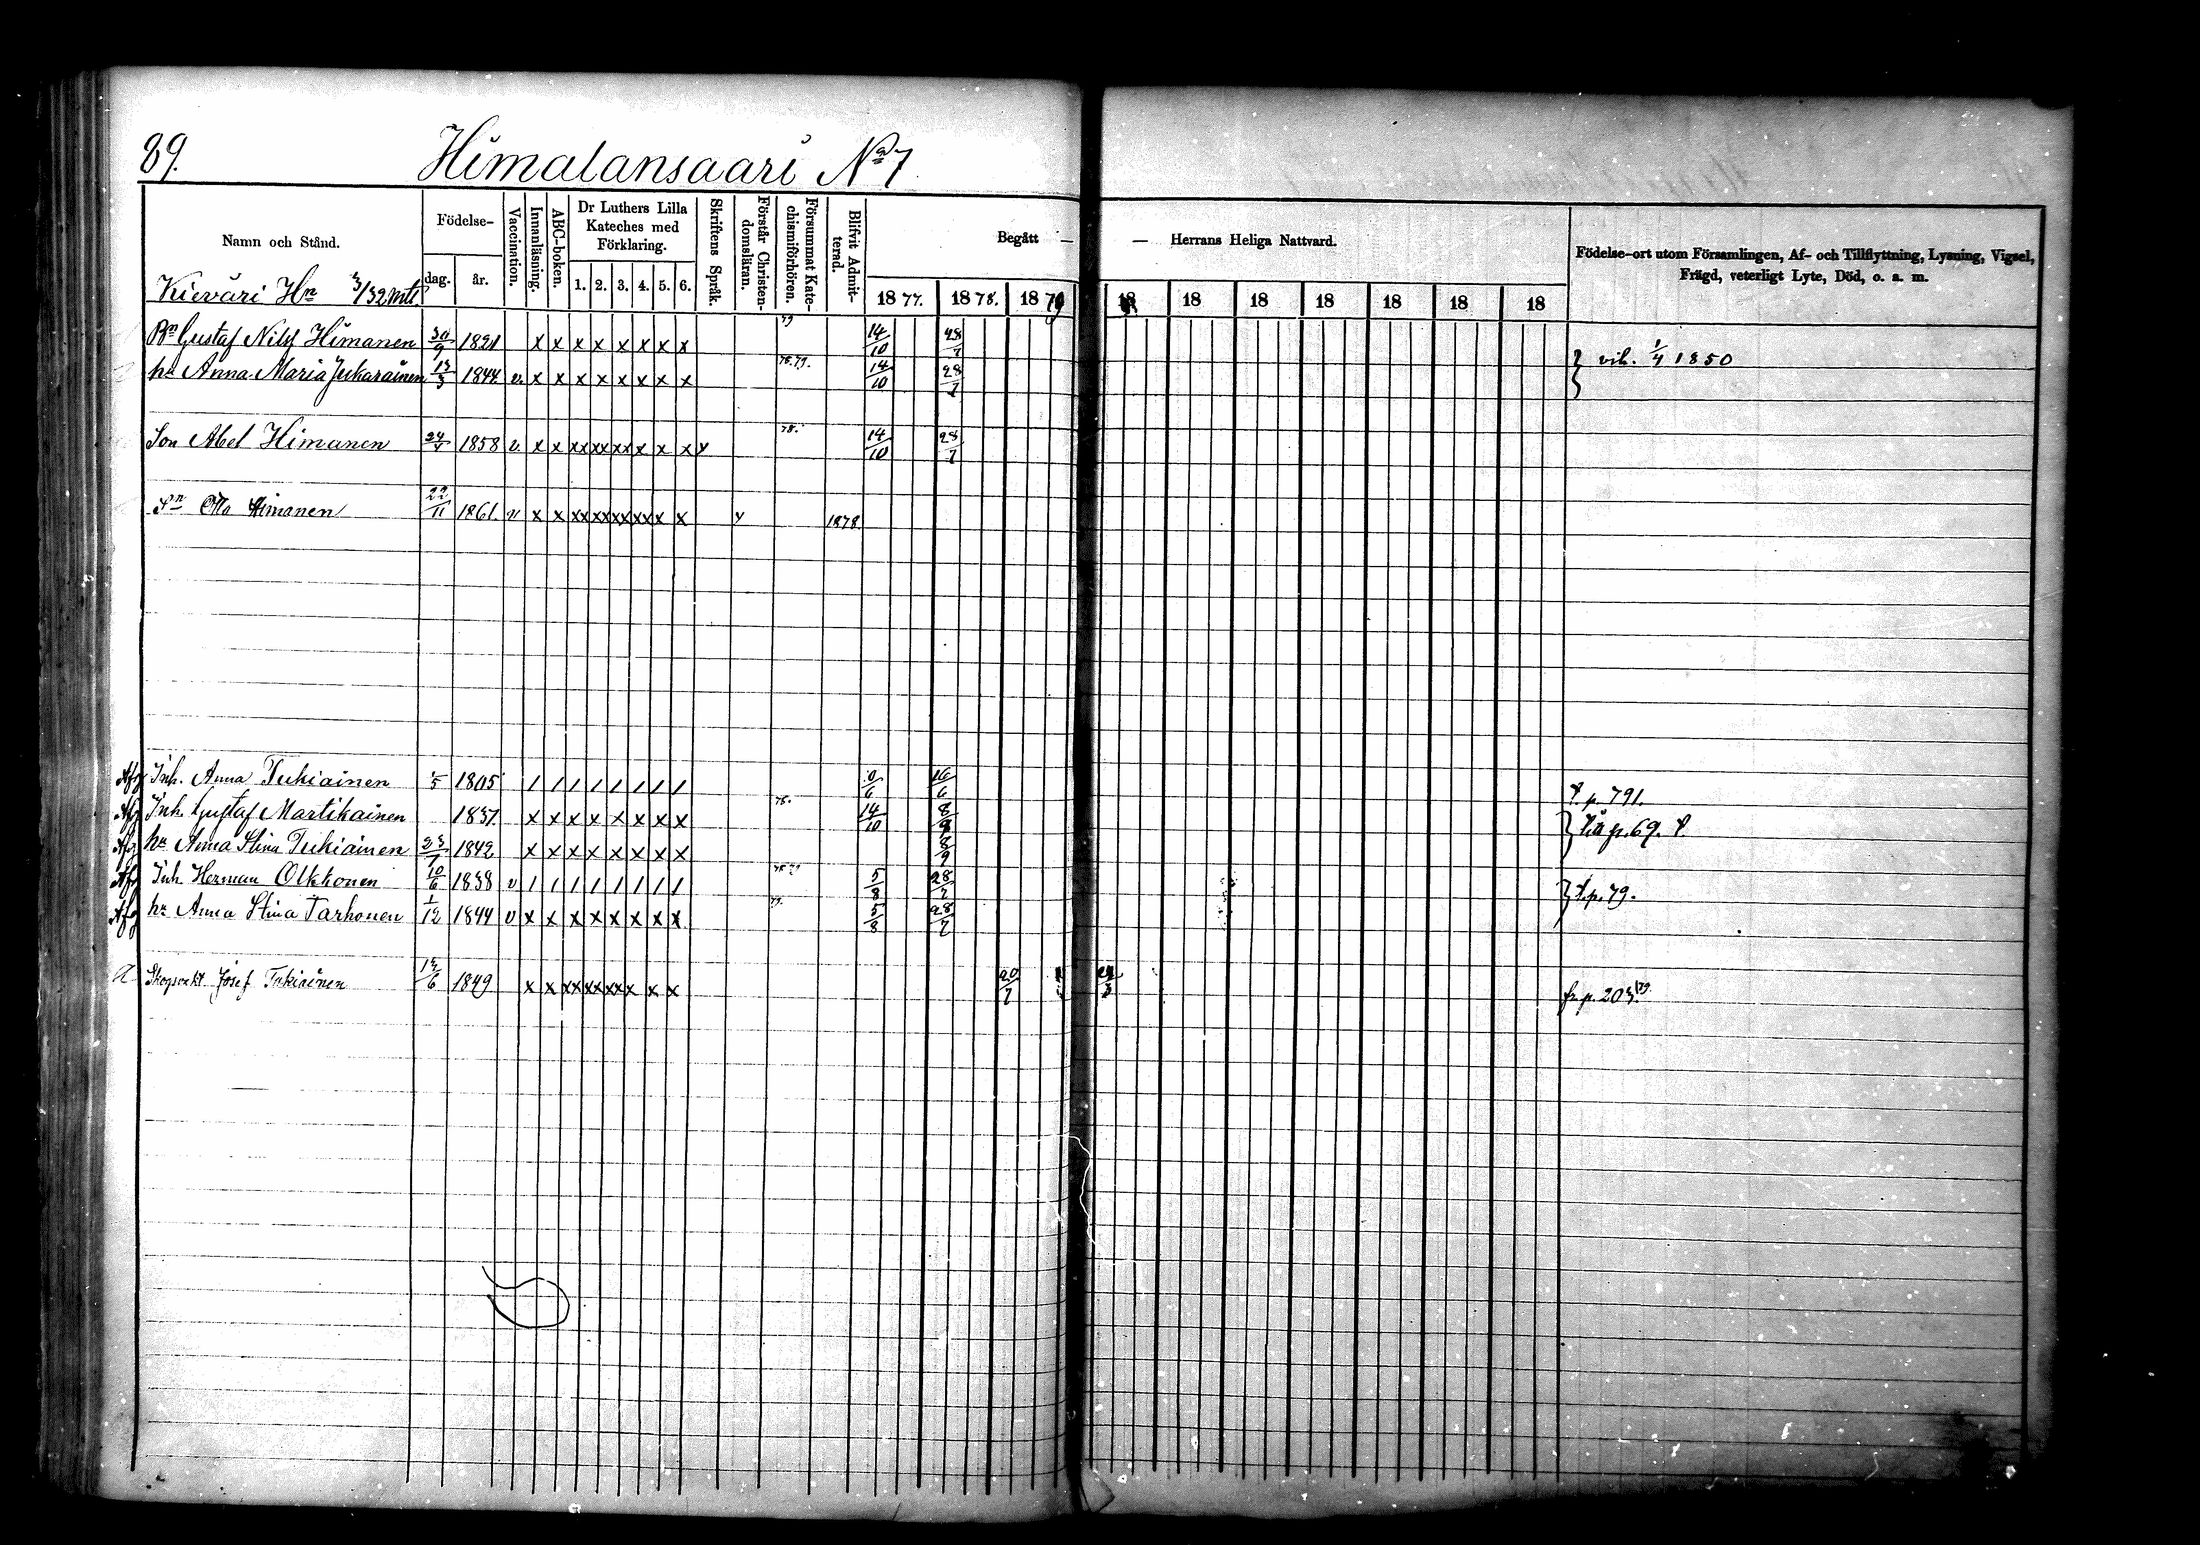 89. Himalansaari No 7
Namn och Stånd. Födelse- dag. år. Vaccination. Innanläsning. ABC-boken. Dr Luthers Lilla Kateches med Förklaring. 1. 2. 3. 4. 5. 6. Skriftens Språk. Förstår Christendomsläran. Försummat Katechismiförhören. Blifvit Admitterad. Begått — — Herrans Heliga Nattvard. 1877. 1878. 1879 18 18 18 18 18 18 18 Födelse-ort utom Församlingen, Af- och Tillflyttning, Lysning, Vigsel, Frägd, veterligt Lyte, Död, o. a. m.
Kieväri Hn 3/32 mtl
Bn Gustaf Nils Himanen 30/9 1821 x x x x x x x x 79 14/10 28/7
hu Anna Maria Jukarainen 13/3 1844 v. x x x x x x x x 78.79. 14/10 28/7 } vih. 1/4 1850
Son Abel Himanen 24/4 1858 v. x x xx xx xx x x x y 78. 14/10 28/7
Sn Otto Himanen 22/11 1861. v x x xx xx xx xx x x y 1878.
Afg Inh. Anna Tukiainen 1805 / / / / / / / / 16/6 f. p. 791.
Afg Inh. Gustaf Martikainen 1837. x x x x x x x x 78. 14/10 8/9
Afg hu Anna Stina Tukiainen 23/7 1842 x x x x x x x x 8/9 } p. 69.
Afg Inh Herman Olkkonen 10/6 1838 v / / / / / / / / 5/8 28/7
Afg hu Anna Stina Tarhonen 1/12 1844 v x x x x x x x x 79. 5/8 28/7 } f. p. 79.
a Skogsvakt Josef Tukiainen 6 1849 x x xx xx xx x x x 20/7 fr. p. 203. 79